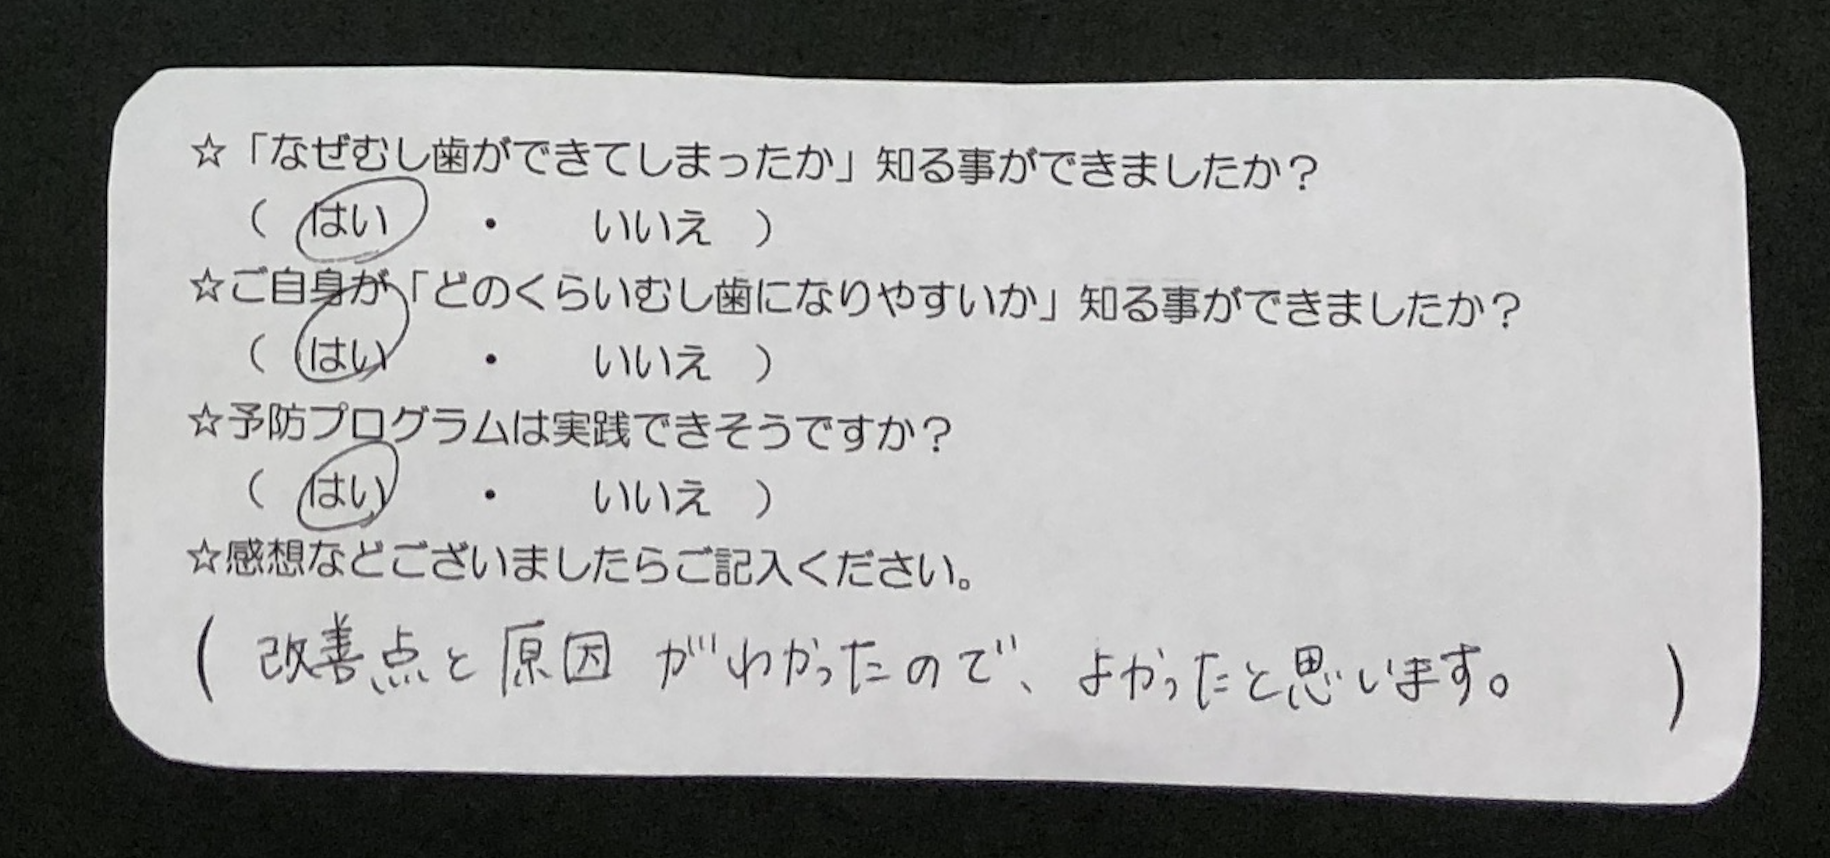 ☆「なぜむし歯ができてしまったか」知る事ができましたか？
（　はい　・　いいえ　）
☆ご自身が「どのくらいむし歯になりやすいか」知る事ができましたか？
（　はい　・　いいえ　）
☆予防プログラムは実践できそうですか？
（　はい　・　いいえ　）
☆感想などございましたらご記入ください。
（改善点と原因がわかったので、よかったと思います。）